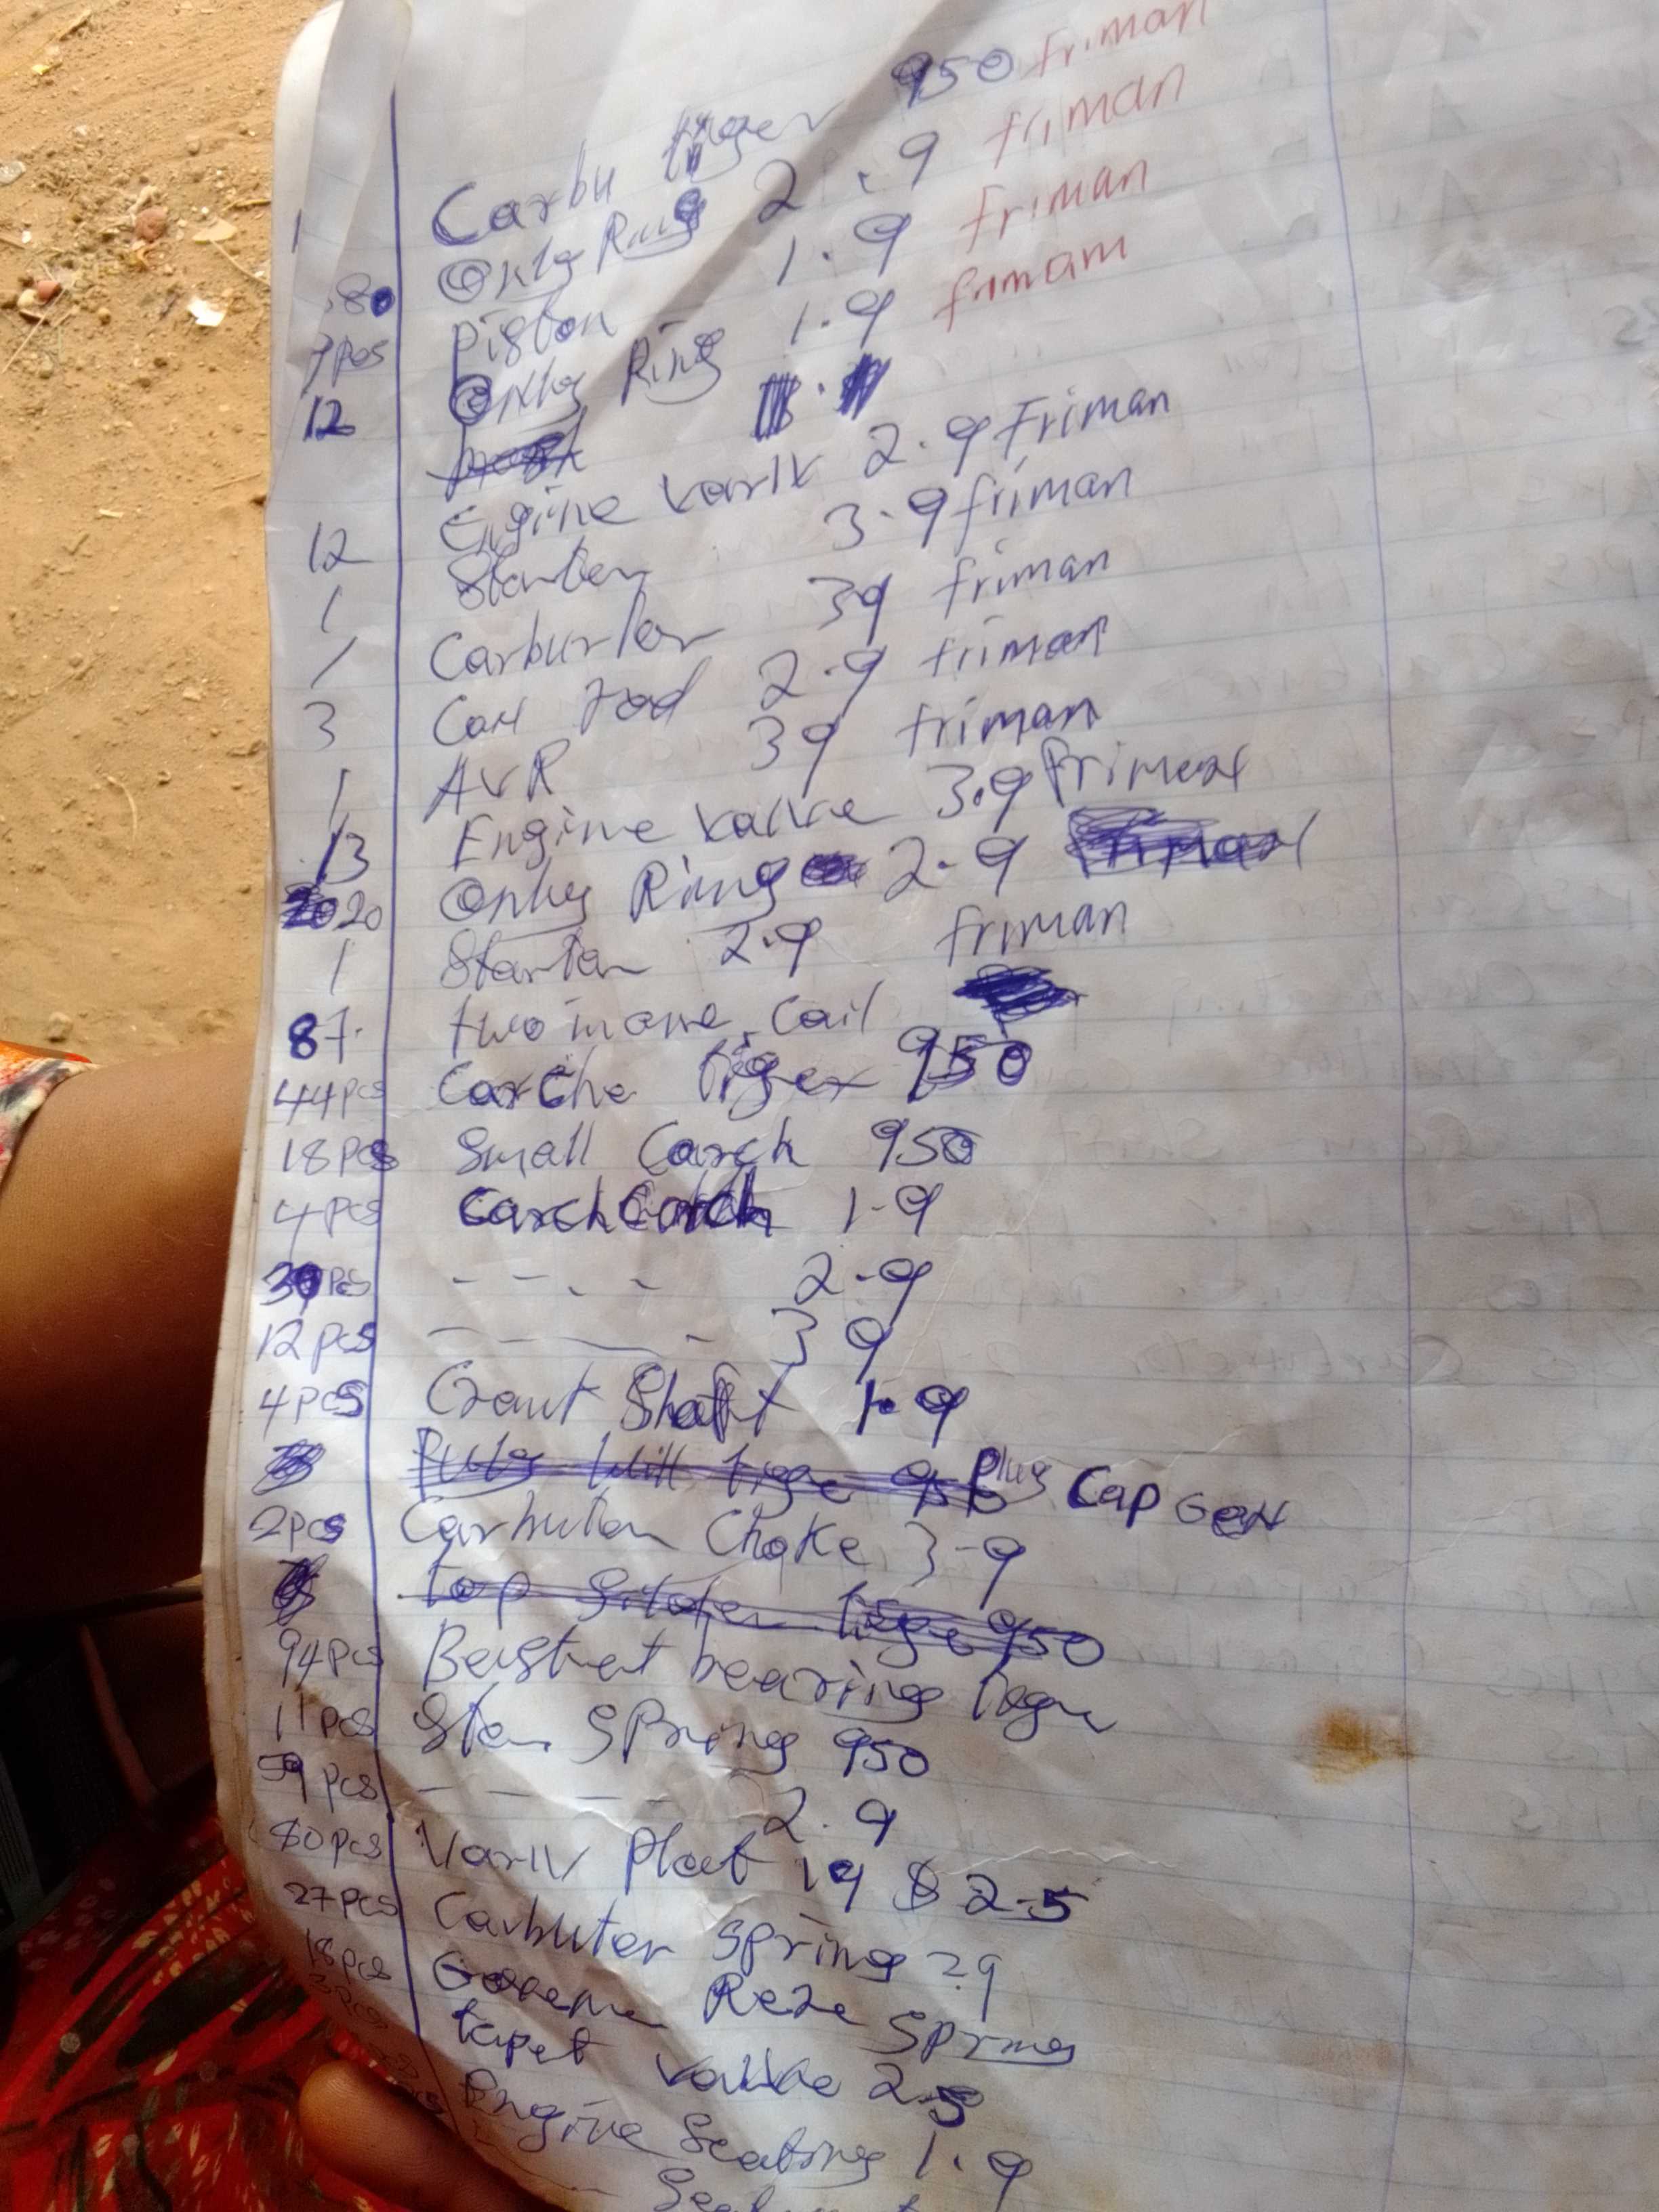 1 Carbu tiger 950 friman
80 Only Ring 2.9 friman
7pcs Piston 1.9 Friman
12 Only Ring 1.9 friman
12 Engine varlv 2.9 Friman
1 Starter 3.9 friman
1 Carburtor 39 friman
3 Con rod 2.9 friman
1 AVR 39 friman
13 Engine valve 3.9 friman
20 Only Ring 2.9
1 Starter 2.9 friman
87 two in one Coil
44pcs Carche tiger 950
18pcs Small Carch 950
4pcs Carch 1-9
30pcs - - - - 2-9
12pcs - - - - 3 9
4pcs Crant Shaft 1.9
Plug Cap Gen
2pcs Carbutor Choke 3-9
top Silder tiger 950
94pcs bearing
11pcs Spring 950
59pcs - - - - 2.9
80pcs Varlv Plat 19 & 2-5
27pcs Carbutor spring 29
18pcs Spring
tapet valve 25
Engine Seating 1.9